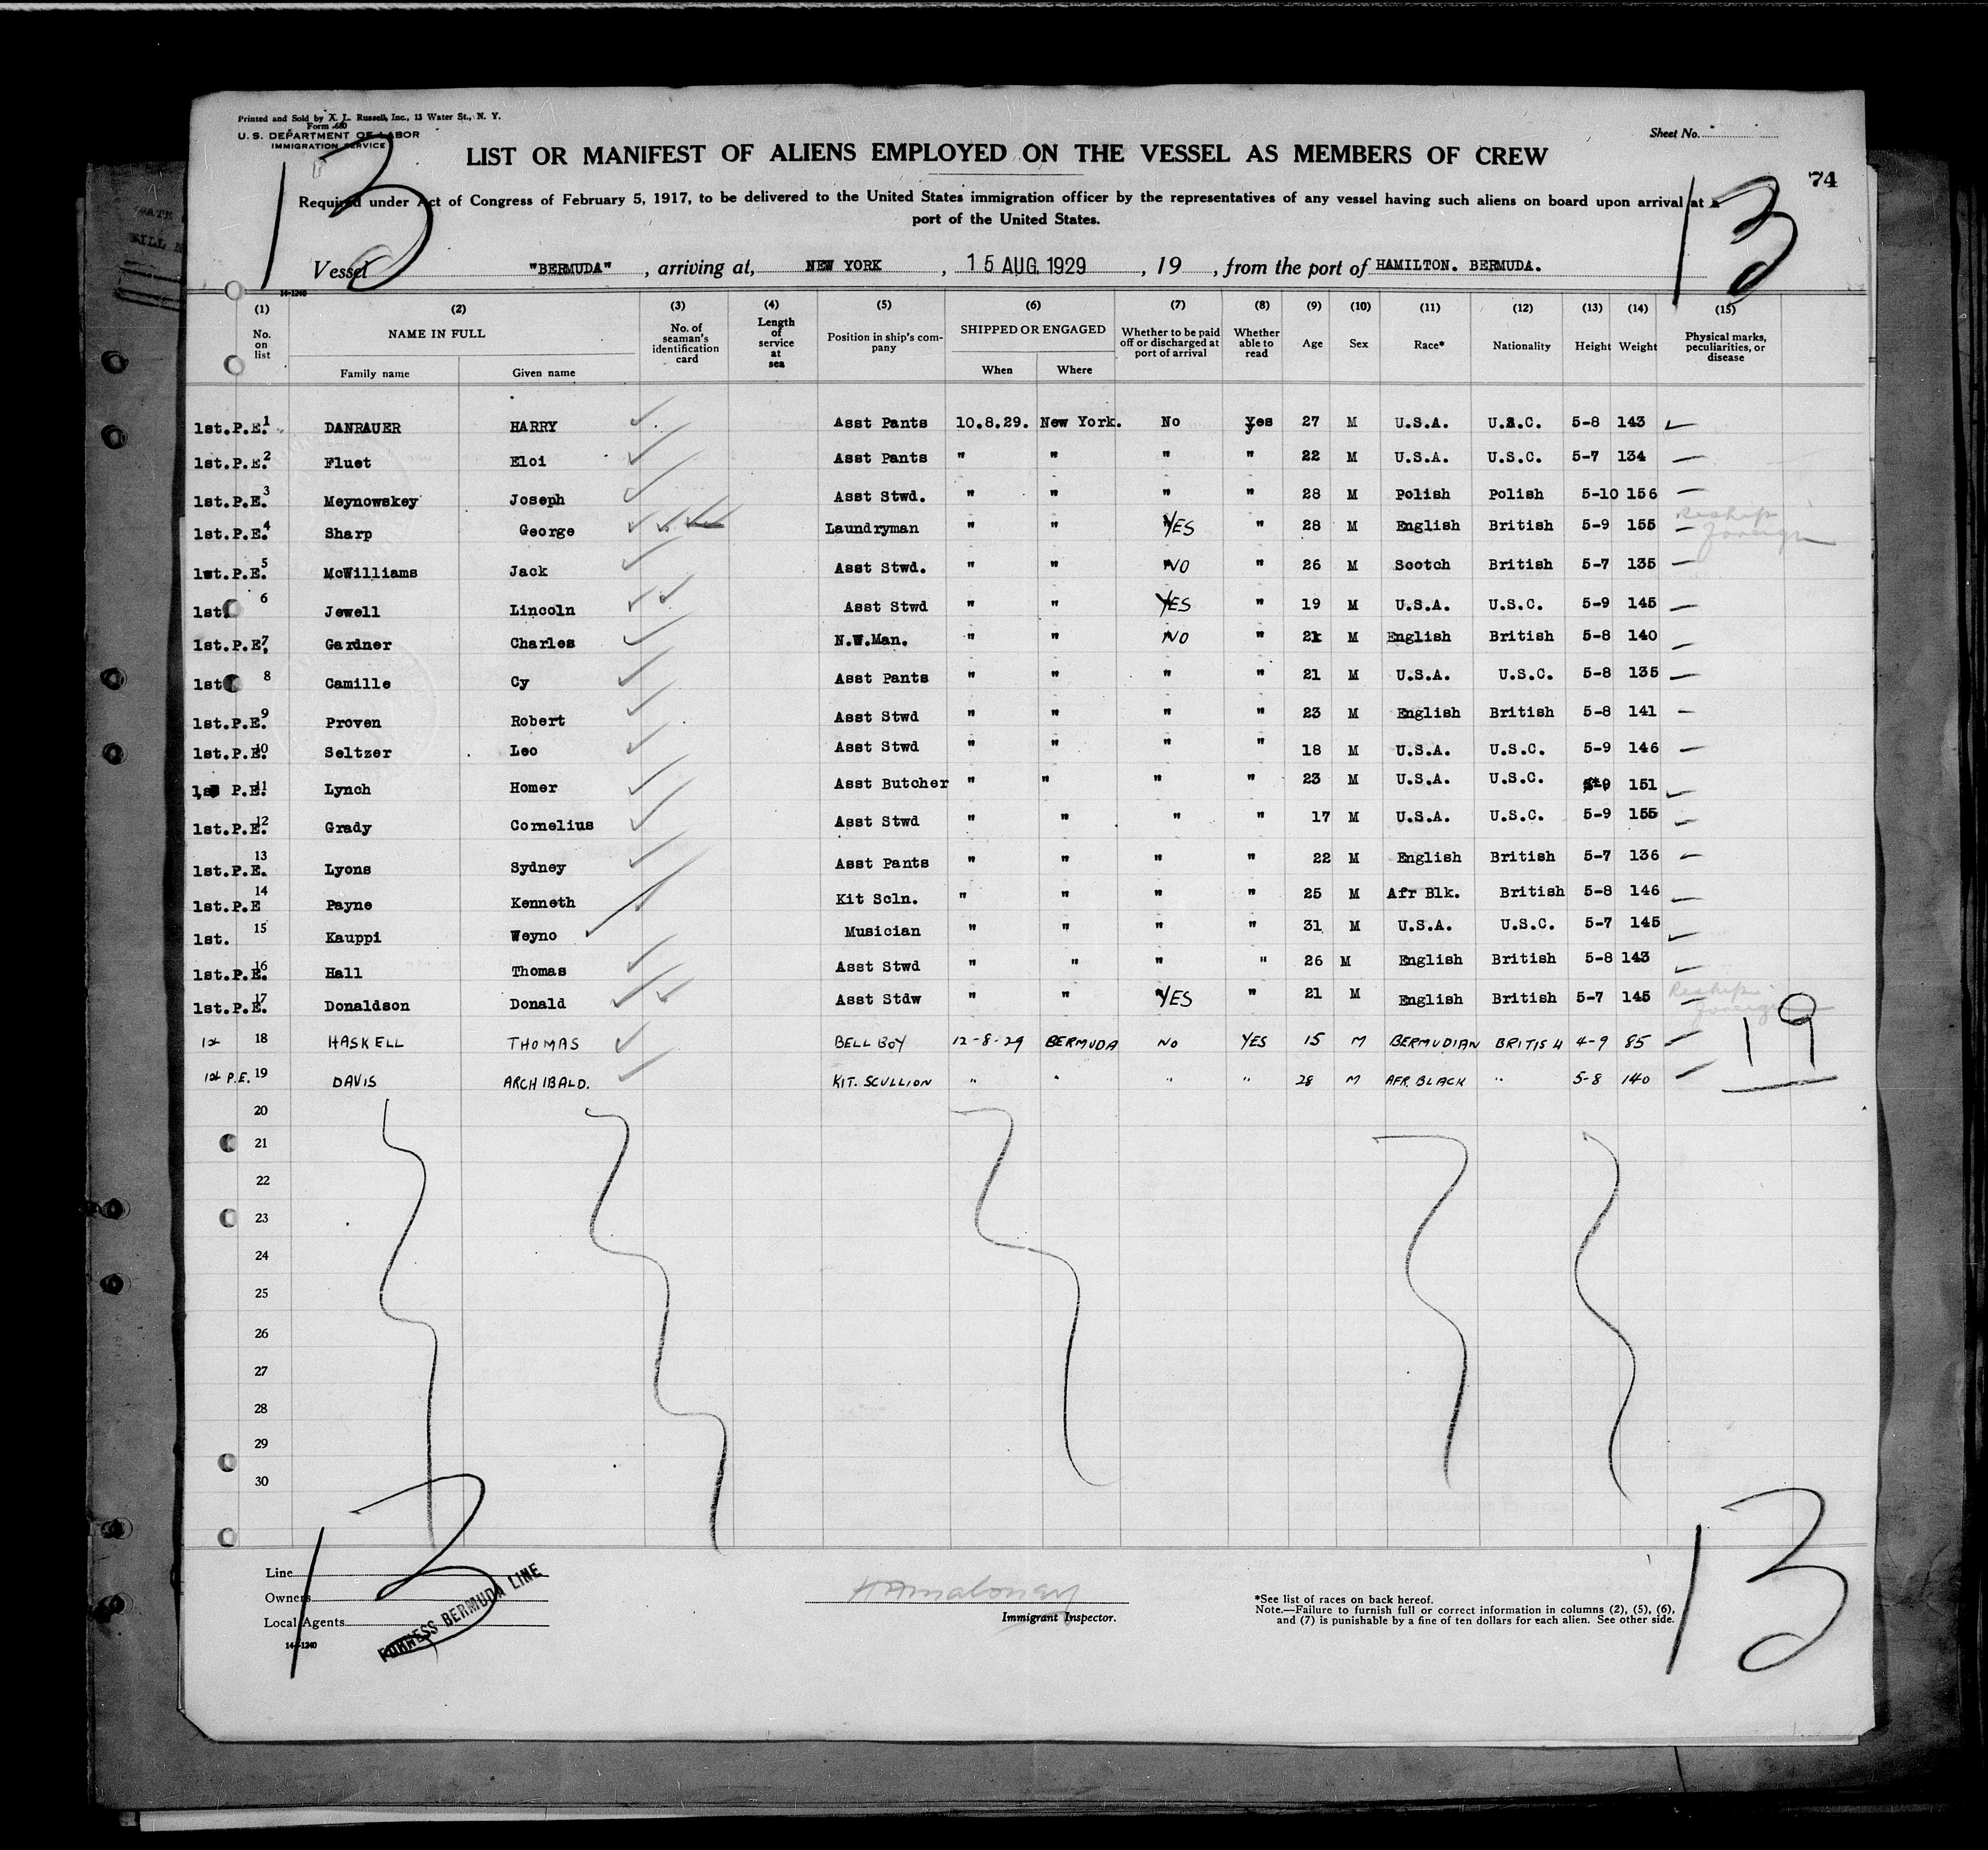 Printed and Sold by X. L. Russell, Inc., 13 Water St., N. Y.
Form 680
U. S. DEPARTMENT OF LABOR
IMMIGRATION SERVICE
Sheet No.
LIST OR MANIFEST OF ALIENS EMPLOYED ON THE VESSEL AS MEMBERS OF CREW
74
13 13
Required under Act of Congress of February 5, 1917, to be delivered to the United States immigration officer by the representatives of any vessel having such aliens on board upon arrival at a
port of the United States.
Vessel "BERMUDA", arriving at, NEW YORK, 15 AUG 1929, 19, from the port of HAMILTON. BERMUDA.
14-1240
(1) (2) (3) (4) (5) (6) (7) (8) (9) (10) (11) (12) (13) (14) (15)
No. on list NAME IN FULL No. of seaman's identification card Length of service at sea Position in ship's company SHIPPED OR ENGAGED Whether to be paid off or discharged at port of arrival Whether able to read Age Sex Race* Nationality Height Weight Physical marks, peculiarities, or disease
Family name Given name When Where
1st.P.E. 1 DANRAUER HARRY Asst Pants 10.8.29. New York. No Yes 27 M U.S.A. U.S.C. 5-8 143
1st.P.E. 2 Fluet Eloi Asst Pants " " " " 22 M U.S.A. U.S.C. 5-7 134
1st.P.E. 3 Meynowskey Joseph Asst Stwd. " " " " 28 M Polish Polish 5-10 156
1st.P.E. 4 Sharp George Laundryman " " YES " 28 M English British 5-9 155 Reship foreign
1st.P.E. 5 McWilliams Jack Asst Stwd. " " NO " 26 M Scotch British 5-7 135
1st. 6 Jewell Lincoln Asst Stwd " " YES " 19 M U.S.A. U.S.C. 5-9 145
1st.P.E. 7 Gardner Charles N.W.Man. " " NO " 21 M English British 5-8 140
1st 8 Camille Cy Asst Pants " " " " 21 M U.S.A. U.S.C. 5-8 135
1st.P.E. 9 Proven Robert Asst Stwd " " " " 23 M English British 5-8 141
1st.P.E. 10 Seltzer Leo Asst Stwd " " " " 18 M U.S.A. U.S.C. 5-9 146
1st P.E. 11 Lynch Homer Asst Butcher " " " " 23 M U.S.A. U.S.C. 5-9 151
1st.P.E. 12 Grady Cornelius Asst Stwd " " " " 17 M U.S.A. U.S.C. 5-9 155
1st.P.E. 13 Lyons Sydney Asst Pants " " " " 22 M English British 5-7 136
1st.P.E 14 Payne Kenneth Kit Scln. " " " " 25 M Afr Blk. British 5-8 146
1st. 15 Kauppi Weyno Musician " " " " 31 M U.S.A. U.S.C. 5-7 145
1st.P.E. 16 Hall Thomas Asst Stwd " " " " 26 M English British 5-8 143
1st.P.E. 17 Donaldson Donald Asst Stdw " " YES " 21 M English British 5-7 145 Reship foreign
1st 18 HASKELL THOMAS BELL BOY 12-8-29 BERMUDA NO YES 15 M BERMUDIAN BRITISH 4-9 85 19
1st P.E. 19 DAVIS ARCHIBALD. KIT. SCULLION " " " " 28 M AFR. BLACK " 5-8 140
20
21
22
23
24
25
26
27
28
29
30
13 13
Line
Owners
Local Agents
FURNESS BERMUDA LINE
14-1240
Immigrant Inspector.
*See list of races on back hereof.
Note.—Failure to furnish full or correct information in columns (2), (5), (6),
and (7) is punishable by a fine of ten dollars for each alien. See other side.